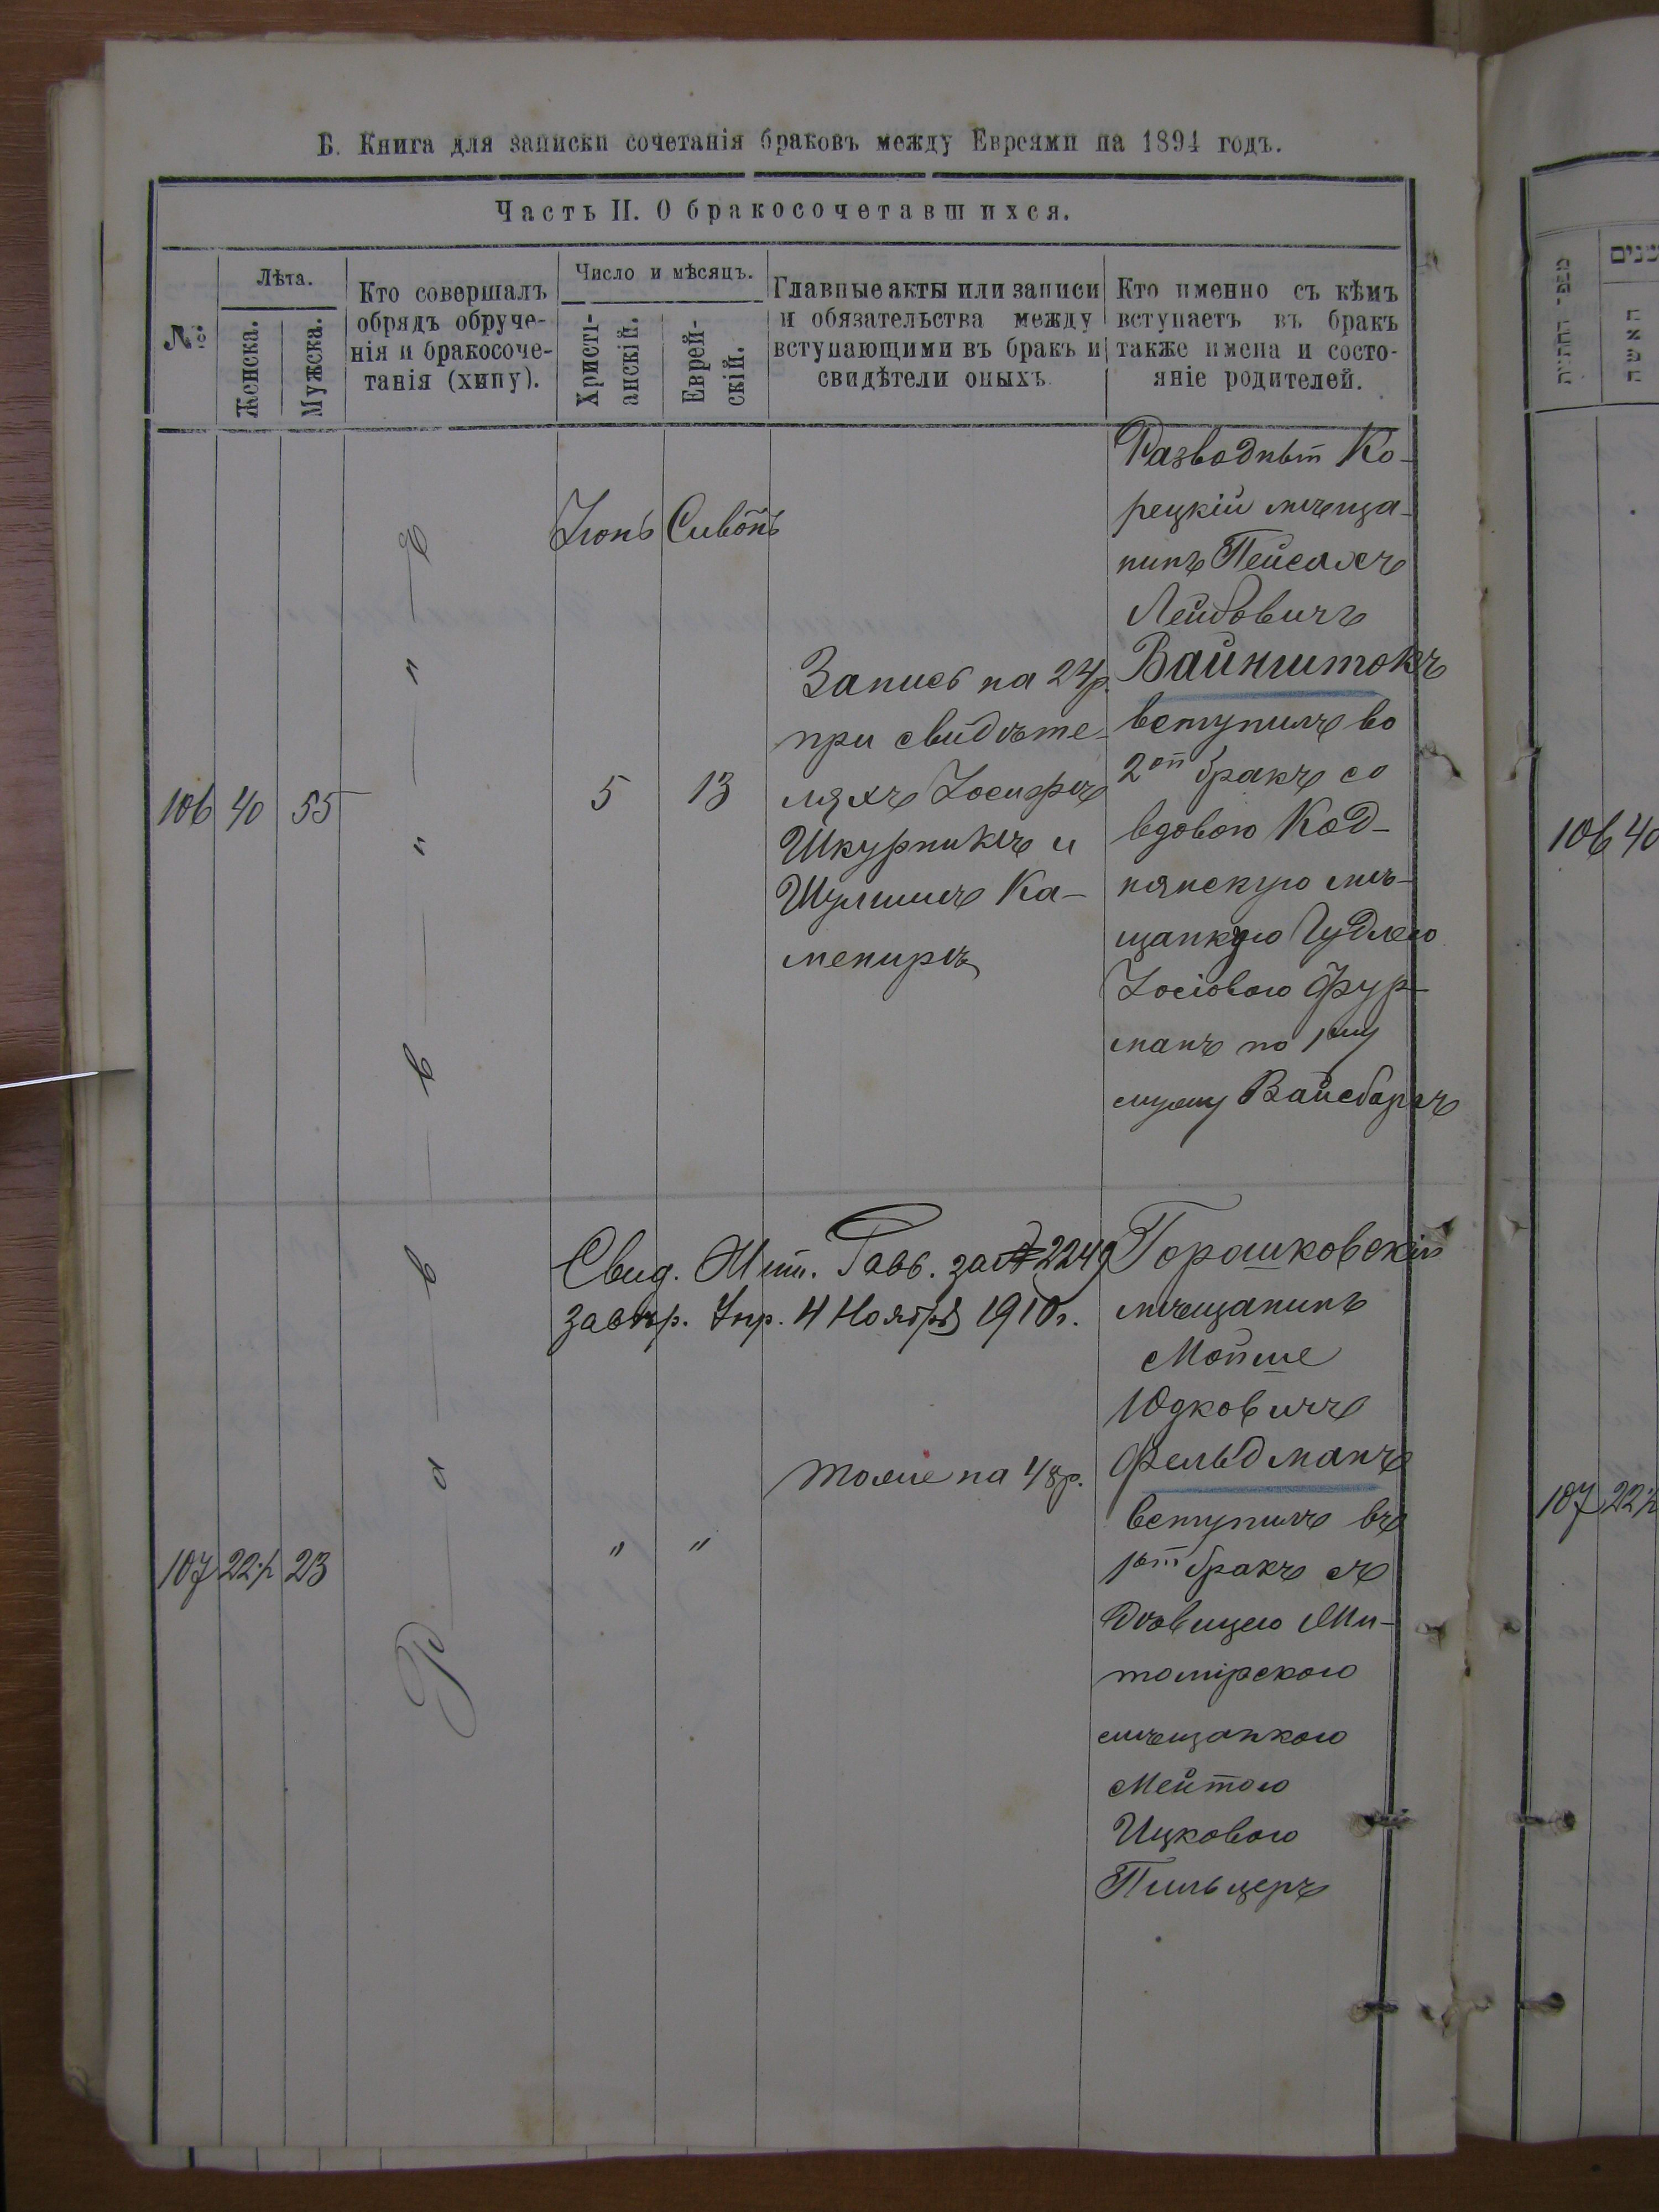 Б. Книга для записки сочетанія браковъ между Евреями на 1894 годъ.
Часть II. О бракосочетавшихся.
№
Лѣта.
Женска.
Мужска.
Кто совершалъ
обрядъ обруче-
нія и бракосоче-
танія (хипу).
Число и мѣсяцъ.
Христі-
анскій.
Еврей-
скій.
Главные акты или записи
и обязательства между
вступающими въ бракъ и
свидѣтели оныхъ
Кто именно съ кѣмъ
вступаетъ въ бракъ
также имена и состо-
яніе родителей.
106 40 55
Р а в в и н
Іюнь Сивонъ
5 13
Запись на 24 р.
при свидѣте-
ляхъ Іосифѣ
Шкурникѣ и
Шулимѣ Ка-
менирѣ
Разводный Ко-
рецкій мѣща-
нинъ Пейсахъ
Лейбовичъ
Вайнштокъ
вступилъ во
2ой бракъ со
вдовою Код-
нянскую мѣ-
щанкою Гудлею
Іосіовою Фур-
манъ по 1му
мужу Вайсбаръ
Свид. Жит. Равв. за № 2249
4 Ноября 1910 г.
107 22½ 23
" "
тоже на 48 р.
Горошковскій
мѣщанинъ
Мойше
Юдковичъ
Фельдманъ
вступилъ въ
1ый бракъ съ
дѣвицею Жи-
томірскою
мѣщанкою
Мейтою
Ицковою
Пильцеръ
מספר החתונות
שנים
האשה
106 40
107 22½